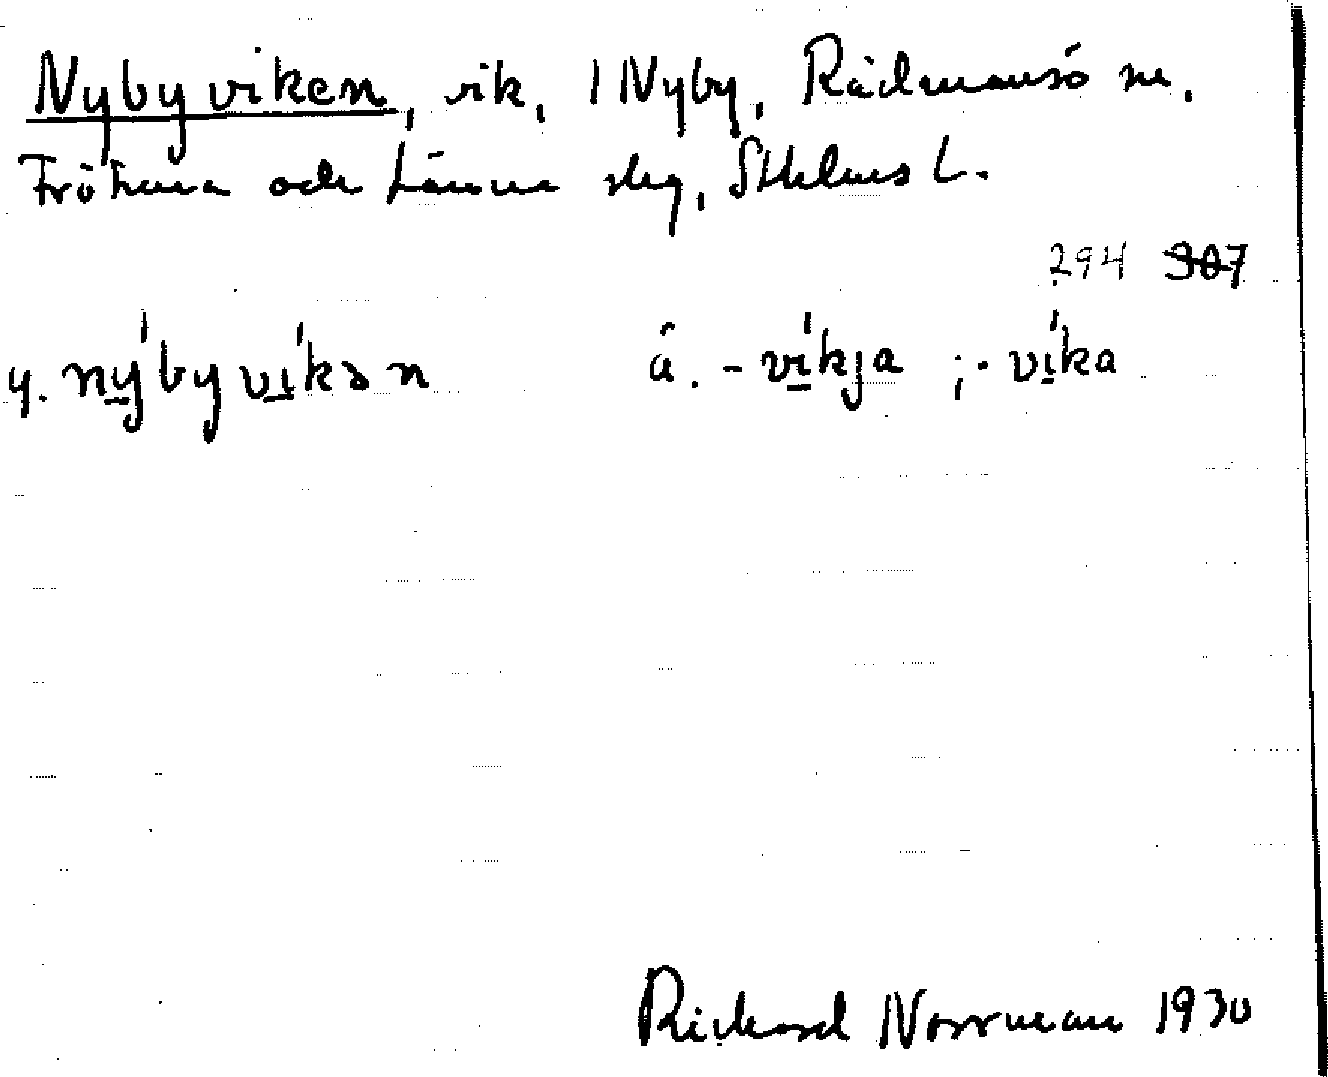 Nybyviken, vik, 1 Nyby, Rådmansö sn,
Frötuna och Länna skg, Sthlms l.
294 307
y. ný̲byvı̲́kən á. - vı̲́kja ; - vı̲́ka
Rickard Norrman 1930